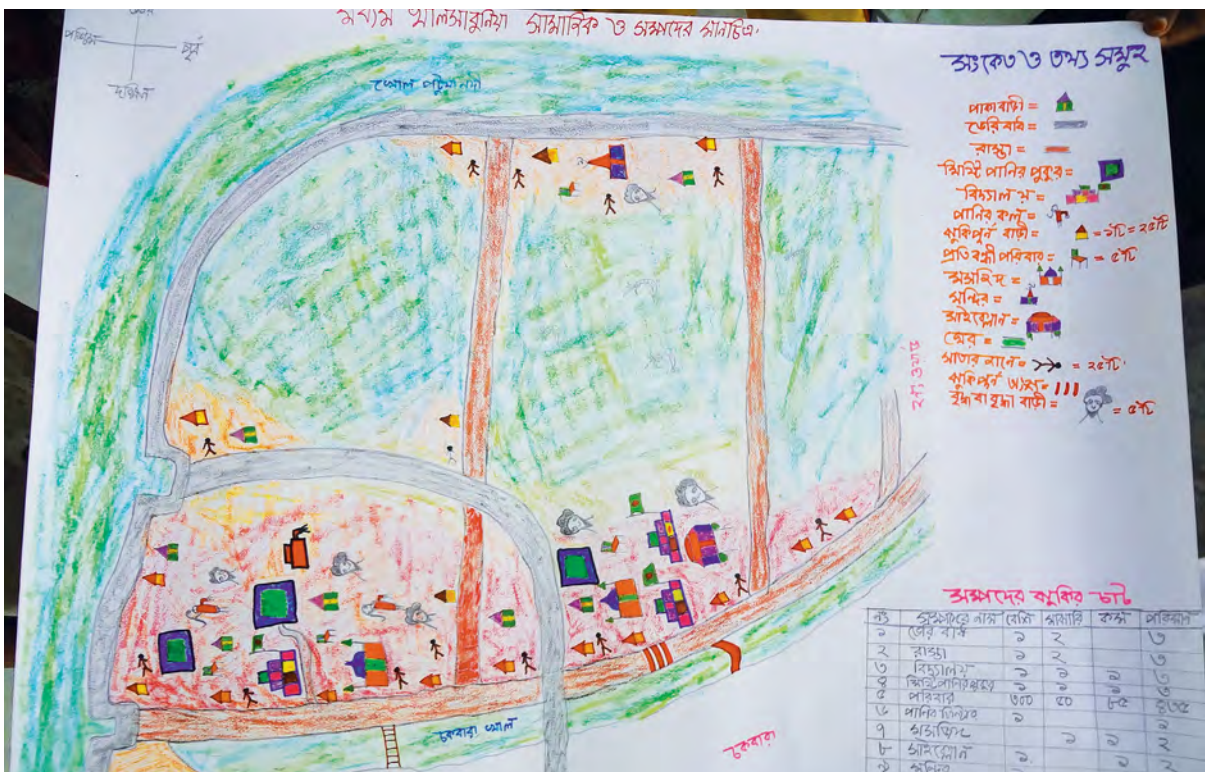 মধ্যম খলিসাবুনিয়া সামাজিক ও সম্পদের মানচিত্র
পশ্চিম
পূর্ব
দক্ষিন
খোল পটুয়া নদী
সংকেত ও তথ্য সমুহ
পাকা বাড়ী =
ভেরি বাধ =
রাস্তা =
মিষ্টি পানির পুকুর =
বিদ্যালয় =
পানির কল =
ঝুকিপূর্ন বাড়ী = = ১টি = ২৫টি
প্রতিবন্ধী পরিবার = = ৫টি
মসজিদ =
মন্দির =
সাইক্লোন =
ঘের =
সাতার জানে = = ২৫টি
ঝুকিপূর্ন
বৃদ্ধ বা বৃদ্ধা বাড়ী = = ৫টি
চকবারা খাল
চকবারা
সম্পদের ঝুকির চার্ট
নং সম্পদের নাম বেশি মাঝারি কম পরিমান
১ ভেরি বাধ ১ ২ ৩
২ রাস্তা ১ ২ ৩
৩ বিদ্যালয় ১ ১ ১ ৩
৪ মিষ্টি পানির পুকুর ১ ১ ১ ৩
৫ পরিবার ৩০০ ৫০ ৮৫ ৪৩৫
৬ পানির ১
৭ মসজিদ ১ ১ ২
৮ সাইক্লোন ১
৯ মন্দির ১ ২